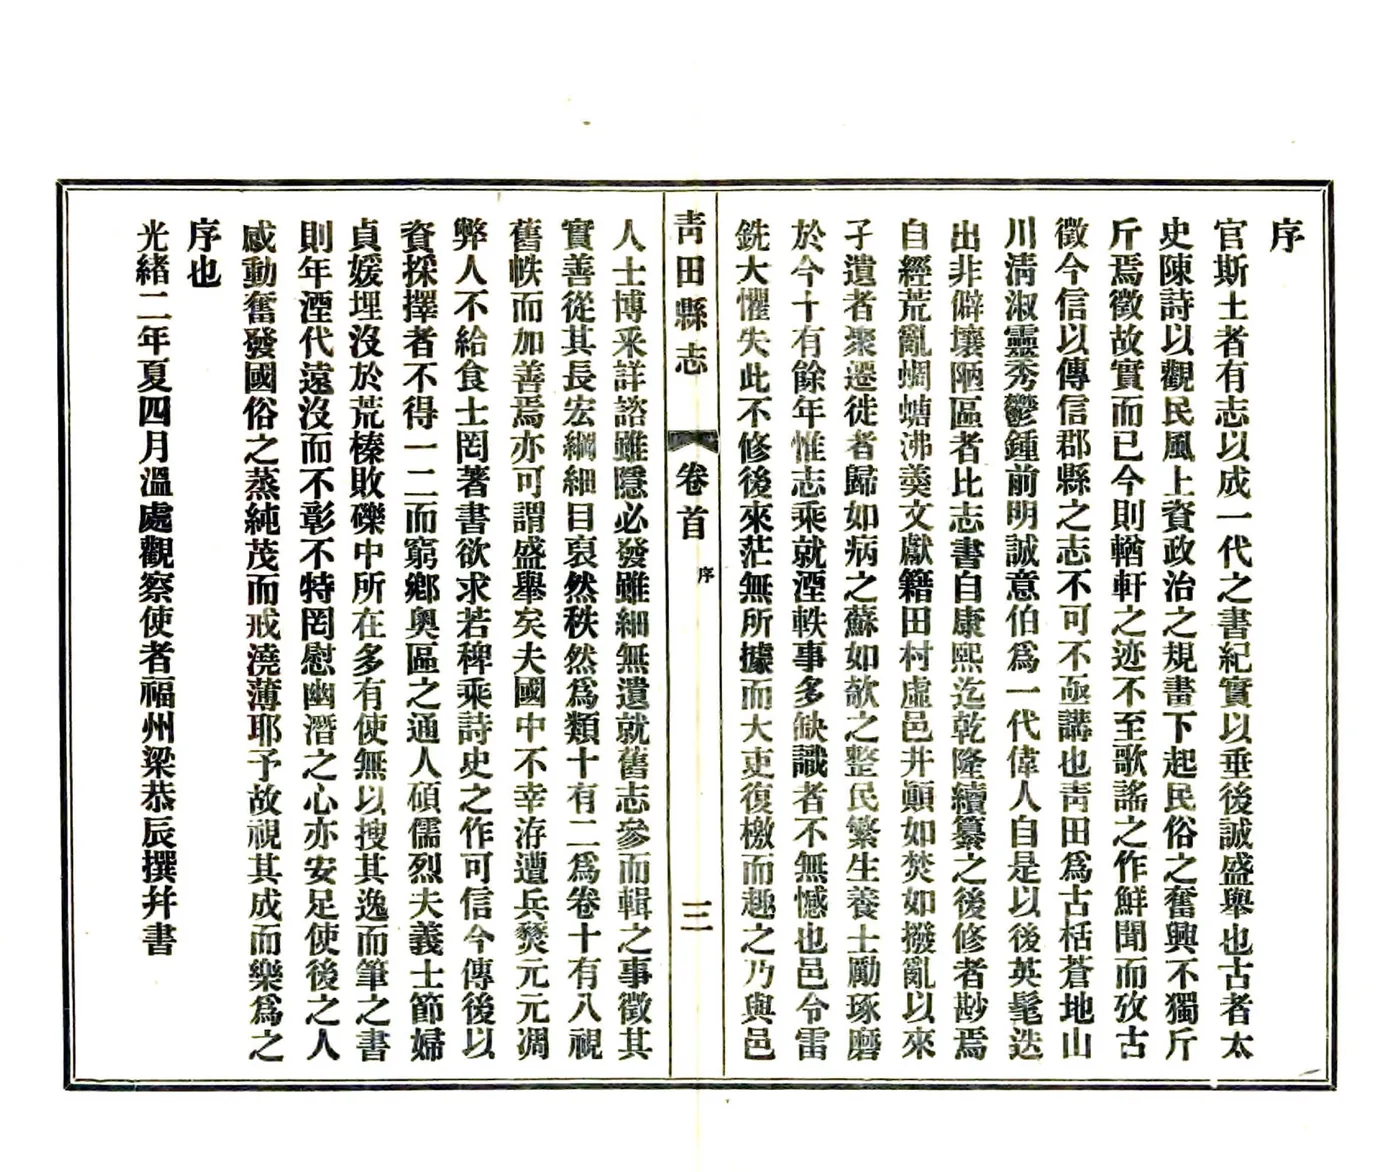 序
官斯土者有志以成一代之書紀實以垂後誠盛舉也古者太
史陳詩以觀民風上資政治之規畫下起民俗之奮興不獨斤
斤焉徵故實而已今則輶軒之迹不至歌謠之作鮮聞而攷古
徵今信以傳信郡縣之志不可不亟講也靑田爲古栝蒼地山
川淸淑靈秀鬱鍾前明誠意伯爲一代偉人自是以後英髦迭
出非僻壤陋區者比志書自康熙迄乾隆續纂之後修者尠焉
自經荒亂蜩螗沸羹文獻籍田村虛邑井顚如焚如撥亂以來
孑遺者聚遷徙者歸如病之蘇如欹之整民繁生養士勵琢磨
於今十有餘年惟志乘就湮軼事多缺識者不無憾也邑令雷
銑大懼失此不修後來茫無所據而大吏復檄而趣之乃與邑
靑田縣志
卷首
序
三
人士博采詳諮雖隱必發雖細無遺就舊志參而輯之事徵其
實善從其長宏綱細目裒然秩然爲類十有二爲卷十有八視
舊帙而加善焉亦可謂盛舉矣夫國中不幸洊遭兵燹元元凋
弊人不給食士罔著書欲求若稗乘詩史之作可信今傳後以
資採擇者不得一二而窮鄕奧區之通人碩儒烈夫義士節婦
貞媛埋沒於荒榛敗礫中所在多有使無以搜其逸而筆之書
則年湮代遠沒而不彰不特罔慰幽潛之心亦安足使後之人
感動奮發國俗之蒸純茂而戒澆薄耶予故視其成而樂爲之
序也
光緖二年夏四月溫處觀察使者福州梁恭辰撰幷書